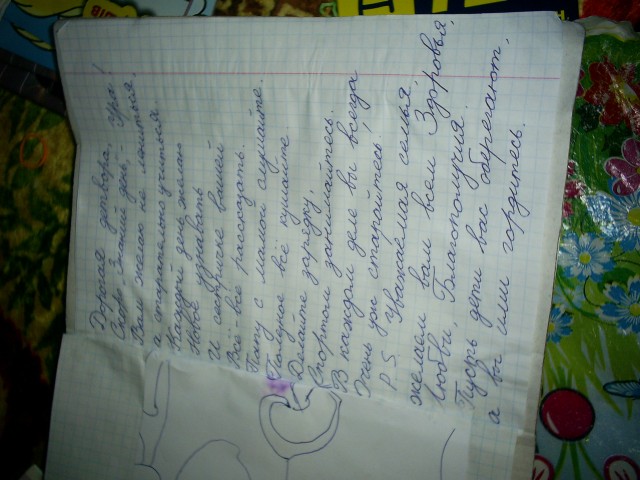 Дорогая детвора, Ура!
Скоро-знаний день,-
Вам желаю не лениться,
а старательно учиться
Каждый день желаю
Новое узнавать
И сестричке вашей
Всё-всё рассказать.
Папу с мамой слушайте.
Получше всё кушайте
Делайте зарядку,
Спортом занимайтесь.
В каждом деле вы всегда
Очень уж старайтесь!
P.S. Уважаемая семья,
желаем вам всем Здоровья,
Любви, Благополучия.
Пусть дети вас оберегают,
а вы ими гордитесь.